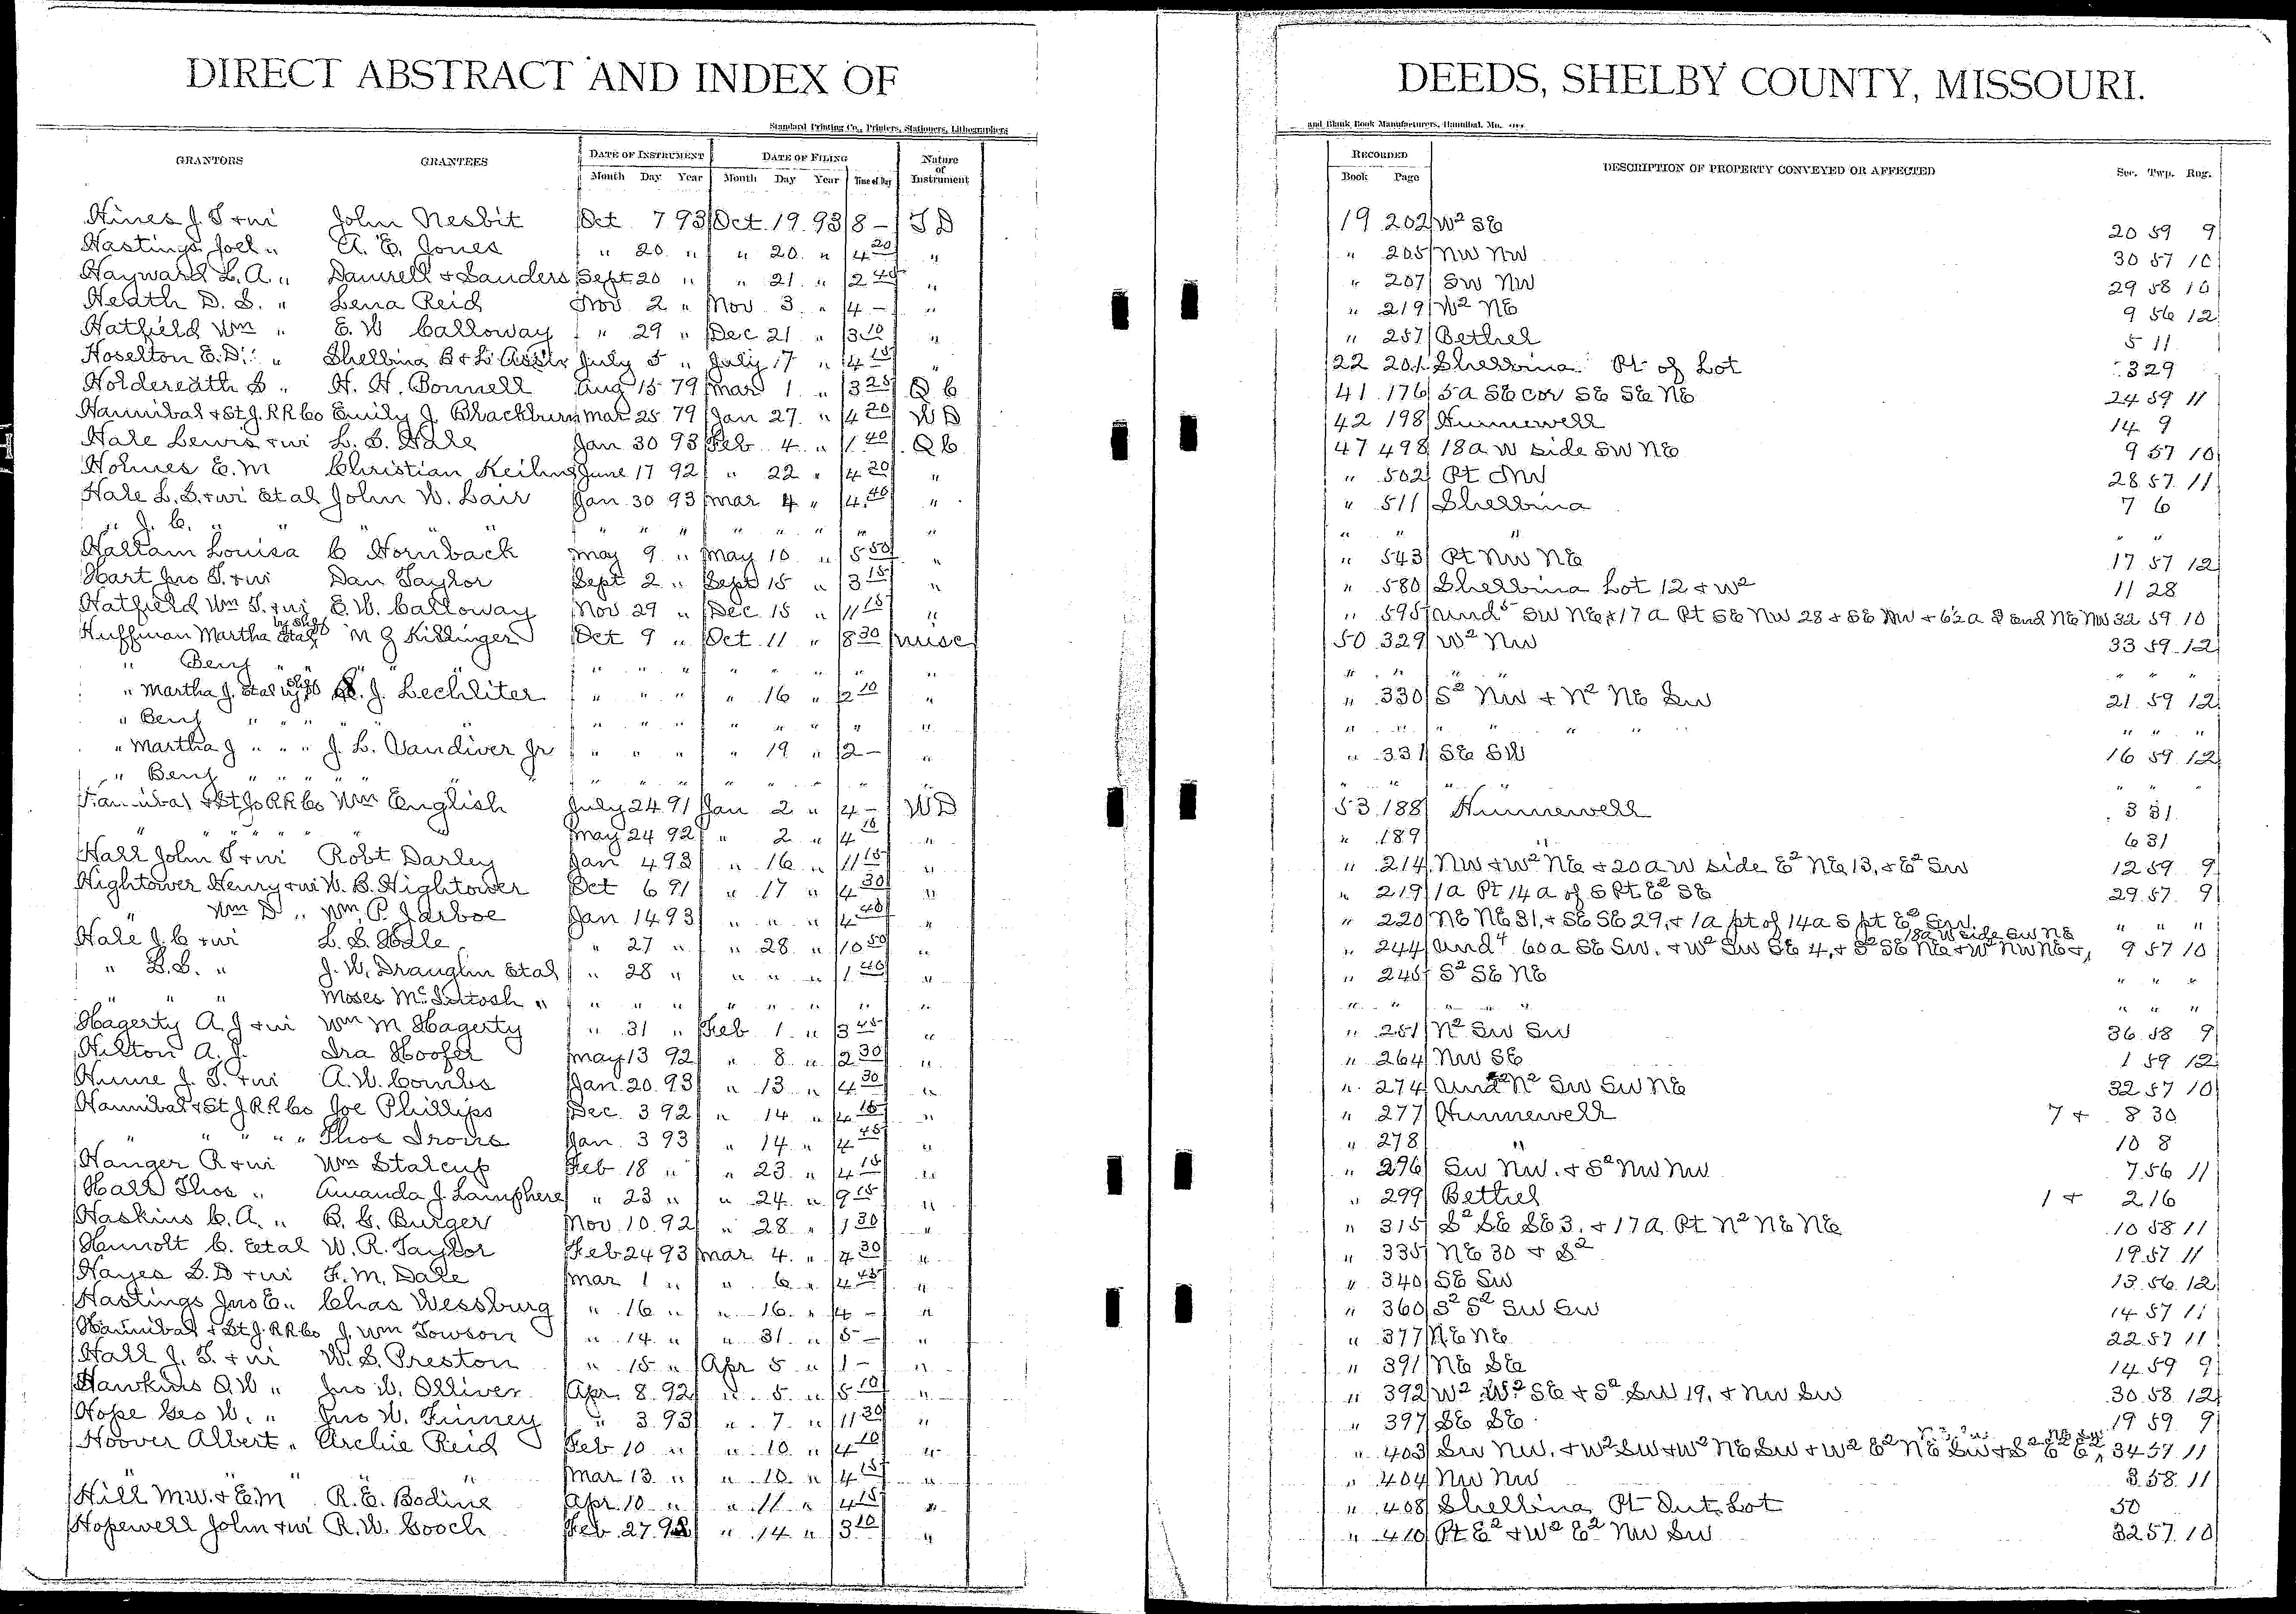 DIRECT ABSTRACT AND INDEX OF DEEDS, SHELBY COUNTY, MISSOURI.
Standard Printing Co., Printers, Stationers, Lithographers and Blank Book Manufacturers, Hannibal, Mo.
GRANTORS GRANTEES DATE OF INSTRUMENT Month Day Year DATE OF FILING Month Day Year Time of Day Nature of Instrument RECORDED Book Page DESCRIPTION OF PROPERTY CONVEYED OR AFFECTED Sec. Twp. Rng.
Hines J. T + wi John Nesbit Oct 7 93 Oct. 19. 93 8 – T D 19 202 W² SE 20 59 9
Hastings Joel " A. E. Jones " 20 " " 20 " 4 20 " " 205 NW NW 30 57 10
Hayward L. A. " Damrell + Sanders Sept 20 " " 21 " 2 40 " " 207 SW NW 29 58 10
Heath D. S. " Lena Reid Nov 2 " Nov 3 " 4 – " " 219 W² NE 9 56 12
Hatfield Wm " E. W Calloway " 29 " Dec 21 " 3 10 " " 257 Bethel 5 11
Hoselton E. D. " Shelbina B + L Ass'n July 5 " July 17 " 4 15 " 22 201 Shelbina Pt of Lot 329
Holdereath S " H. H. Bonnell Aug 15 79 Mar 1 " 3 25 Q C 41 176 5 a SE cor SE SE NE 24 59 11
Hannibal + St J. RR Co Emily J. Blackburn Mar 25 79 Jan 27 " 4 20 W D 42 198 Hunnewell 14 9
Hale Lewis + wi L. S. Hale Jan 30 93 Feb 4 " 1 40 Q C 47 498 18 a W side SW NE 9 57 10
Holmes E. M Christian Keiling June 17 92 " 22 " 4 20 " " 502 Pt NW 28 57 11
Hale L. S. + wi Et al John W. Lair Jan 30 93 Mar 4 " 4 40 " " 511 Shelbina 7 6
" J. C. " " " " " " " " " " " " " " " " "
Hallam Louisa C Hornback May 9 " May 10 " 5 50 " " 543 Pt NW NE 17 57 12
Hart Jno T. + wi Dan Taylor Sept 2 " Sept 15 " 3 15 " " 580 Shelbina Lot 12 + W² 11 28
Hatfield Wm T. + wi E. W. Calloway Nov 29 " Dec 15 " 11 15 " " 595 Und⁵ SW NE + 17 a Pt SE NW 28 + SE NW + 62 a S end NE NW 32 59 10
Huffman Martha Et al by Shff M J Killinger Oct 9 " Oct 11 " 8 30 Misc 50 329 W² NW 33 59 12
" Benj " " " " " " " " " " " " " " " "
" Martha J. Et al by Shff S. J. Lechliter " " " " 16 " 2 10 " " 330 S² NW + N² NE SW 21 59 12
" Benj " " " " " " " " " " " " " " "
" Martha J " " " J. L. Vandiver Jr " " " " 19 " 2 – " " 331 SE SW 16 59 12
" Benj " " " " " " " " " " " " " " " "
Hannibal + St Jo RR Co Wm English July 24 91 Jan 2 " 4 – W D 53 188 Hunnewell 3 31
" " " " " " May 24 92 " 2 " 4 10 " " 189 " 6 31
Hall John T + wi Robt Darley Jan 4 93 " 16 " 11 15 " " 214 NW + W² NE + 20 a W side E² NE 13, + E² SW 12 59 9
Hightower Henry + wi W. B. Hightower Oct 6 91 " 17 " 4 30 " " 219 1 a Pt 14 a of S Pt E² SE 29 57 9
" Wm D " Wm P. Jarboe Jan 14 93 " " " 4 40 " " 220 NE NE 31, + SE SE 29, + 1 a pt of 14 a S pt E² SW. " " "
Hale J. C + wi L. S. Hale " 27 " " 28 " 10 50 " " 244 Und⁴ 60 a SE SW. + W² SW SE 4, + S² SE NE + W² NW NE +, 18 a W side SW NE 9 57 10
" L. S. " J. W. Draughn Et al " 28 " " " " 1 40 " " 245 S² SE NE " " "
" " " Moses McIntosh " " " " " " " " " " " " " " " "
Hagerty A. J + wi Wm M Hagerty " 31 " Feb 1 " 3 45 " " 251 N² SW SW 36 58 9
Hilton A. J. Ira Hoofer May 13 92 " 8 " 2 30 " " 264 NW SE 1 59 12
Hume J. T. + wi A. W. Combs Jan. 20. 93 " 13 " 4 30 " " 274 Und² N² SW SW NE 32 57 10
Hannibal + St J. RR Co Joe Phillips Dec. 3 92 " 14 " 4 15 " " 277 Hunnewell 7 + 8 30
" " " " " Thos Irons Jan. 3 93 " 14 " 4 45 " " 278 " 10 8
Hanger R + wi Wm Stalcup Feb 18 " " 23 " 4 15 " " 296 SW NW. + S² NW NW 7 56 11
Hall Thos " Amanda J Lamphere " 23 " " 24 " 9 15 " " 299 Bethel 1 + 2 16
Haskins C. A. " B. G. Burger Nov. 10. 92 " 28 " 1 30 " " 315 S² SE SE 3, + 17 a Pt N² NE NE 10 58 11
Hennolt C. Et al W. R. Taylor Feb 24 93 Mar 4 " 4 30 " " 335 NE 30 + S² 19 57 11
Hayes S. D + wi F. M. Dale Mar 1 " " 6 " 4 45 " " 340 SE SW 13 56 12
Hastings Jno E " Chas Wessburg " 16 " " 16 " 4 – " " 360 S² S² SW SW 14 57 11
Hannibal + St J. RR Co J. Wm Towson " 14 " " 31 " 5 – " " 377 NE NE 22 57 11
Hall J. T. + wi W. S. Preston " 15 " Apr 5 " 1 – " " 391 NE SE 14 59 9
Hawkins O. W " Jno W. Olliver Apr. 8. 92 " 5 " 5 10 " " 392 W² W² SE + S² SW 19, + NW SW 30 58 12
Hope Geo W. " Jno W. Finney " 3 93 " 7 " 11 30 " " 397 SE SE 19 59 9
Hoover Albert " Archie Reid Feb 10 " " 10 " 4 10 " " 403 SW NW. + W² SW + W² NE SW + W² E² NE SW + S² E² E², NE SW 34 57 11
" " " Mar 13 " " 10 " 4 15 " " 404 NW NW 3 58 11
Hill M W. + E. M R. E. Bodine Apr. 10 " " 11 " 4 15 " " 408 Shelbina Pt Out Lot 50
Hopewell John + wi R. W. Gooch Feb. 27. 92 " 14 " 3 10 " " 410 Pt E² + W² E² NW SW 32 57 10